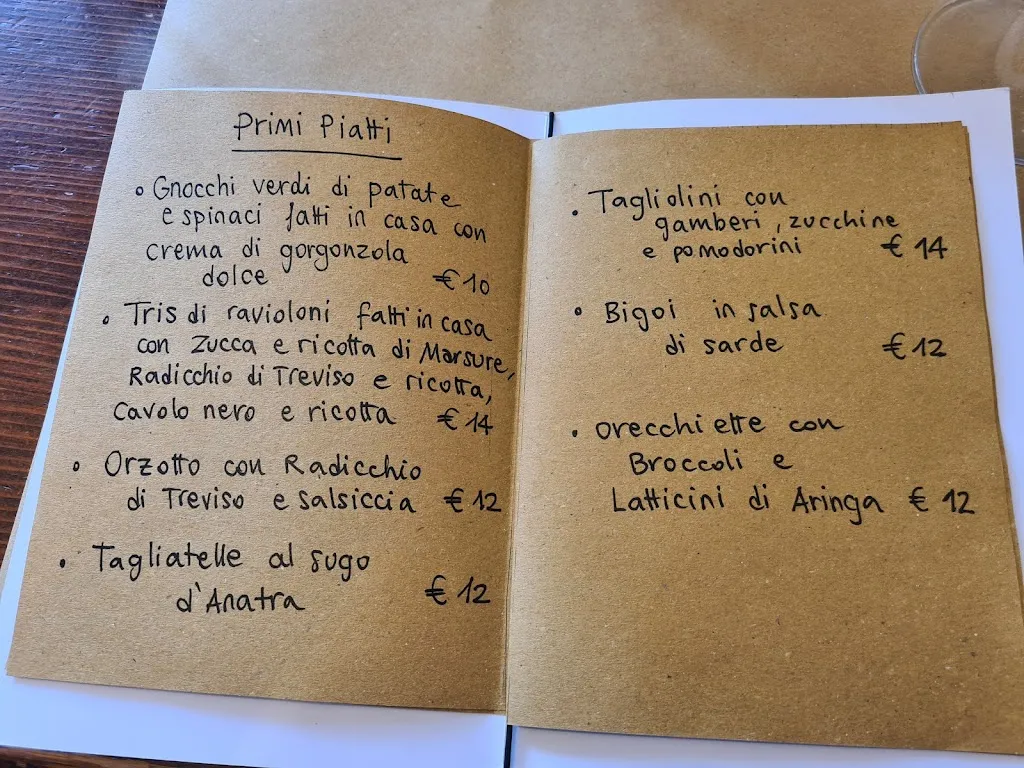 Primi Piatti
• Gnocchi verdi di patate
e spinaci fatti in casa con
crema di gorgonzola
dolce € 10
• Tris di ravioloni fatti in casa
con Zucca e ricotta di Marsure,
Radicchio di Treviso e ricotta,
Cavolo nero e ricotta € 14
• Orzotto con Radicchio
di Treviso e salsiccia € 12
• Tagliatelle al sugo
d'Anatra € 12
• Tagliolini con
gamberi, zucchine
e pomodorini € 14
• Bigoi in salsa
di sarde € 12
• Orecchiette con
Broccoli e
Latticini di Aringa € 12